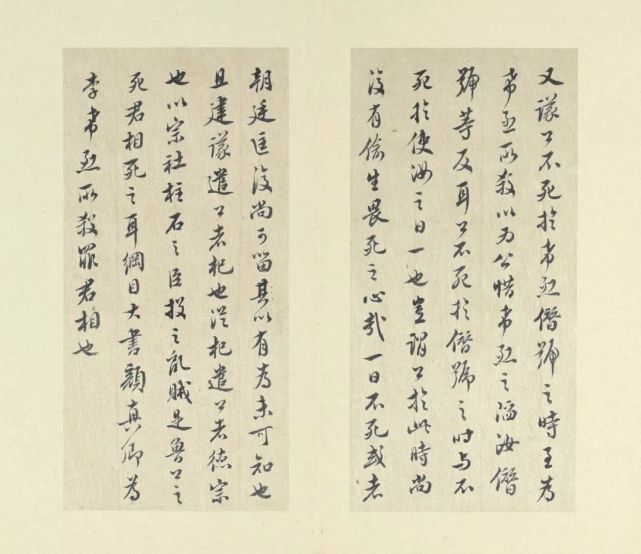 又議公不死於希烈僭號之時至為
希烈所殺以为公惜希烈之陷汝僭
號等反耳公不死於僭號之时与不
死於使汝之日一也豈謂公於此時尚
復有偷生畏死之心哉一日不死或者
朝廷匡復尚可留其以有為未可知也
且建議遣公者杞也從杞遣公者德宗
也以宗社柱石之臣投之亂賊是魯公之
死君相死之耳綱目大書顏真卿為
李希烈所殺罪君相也